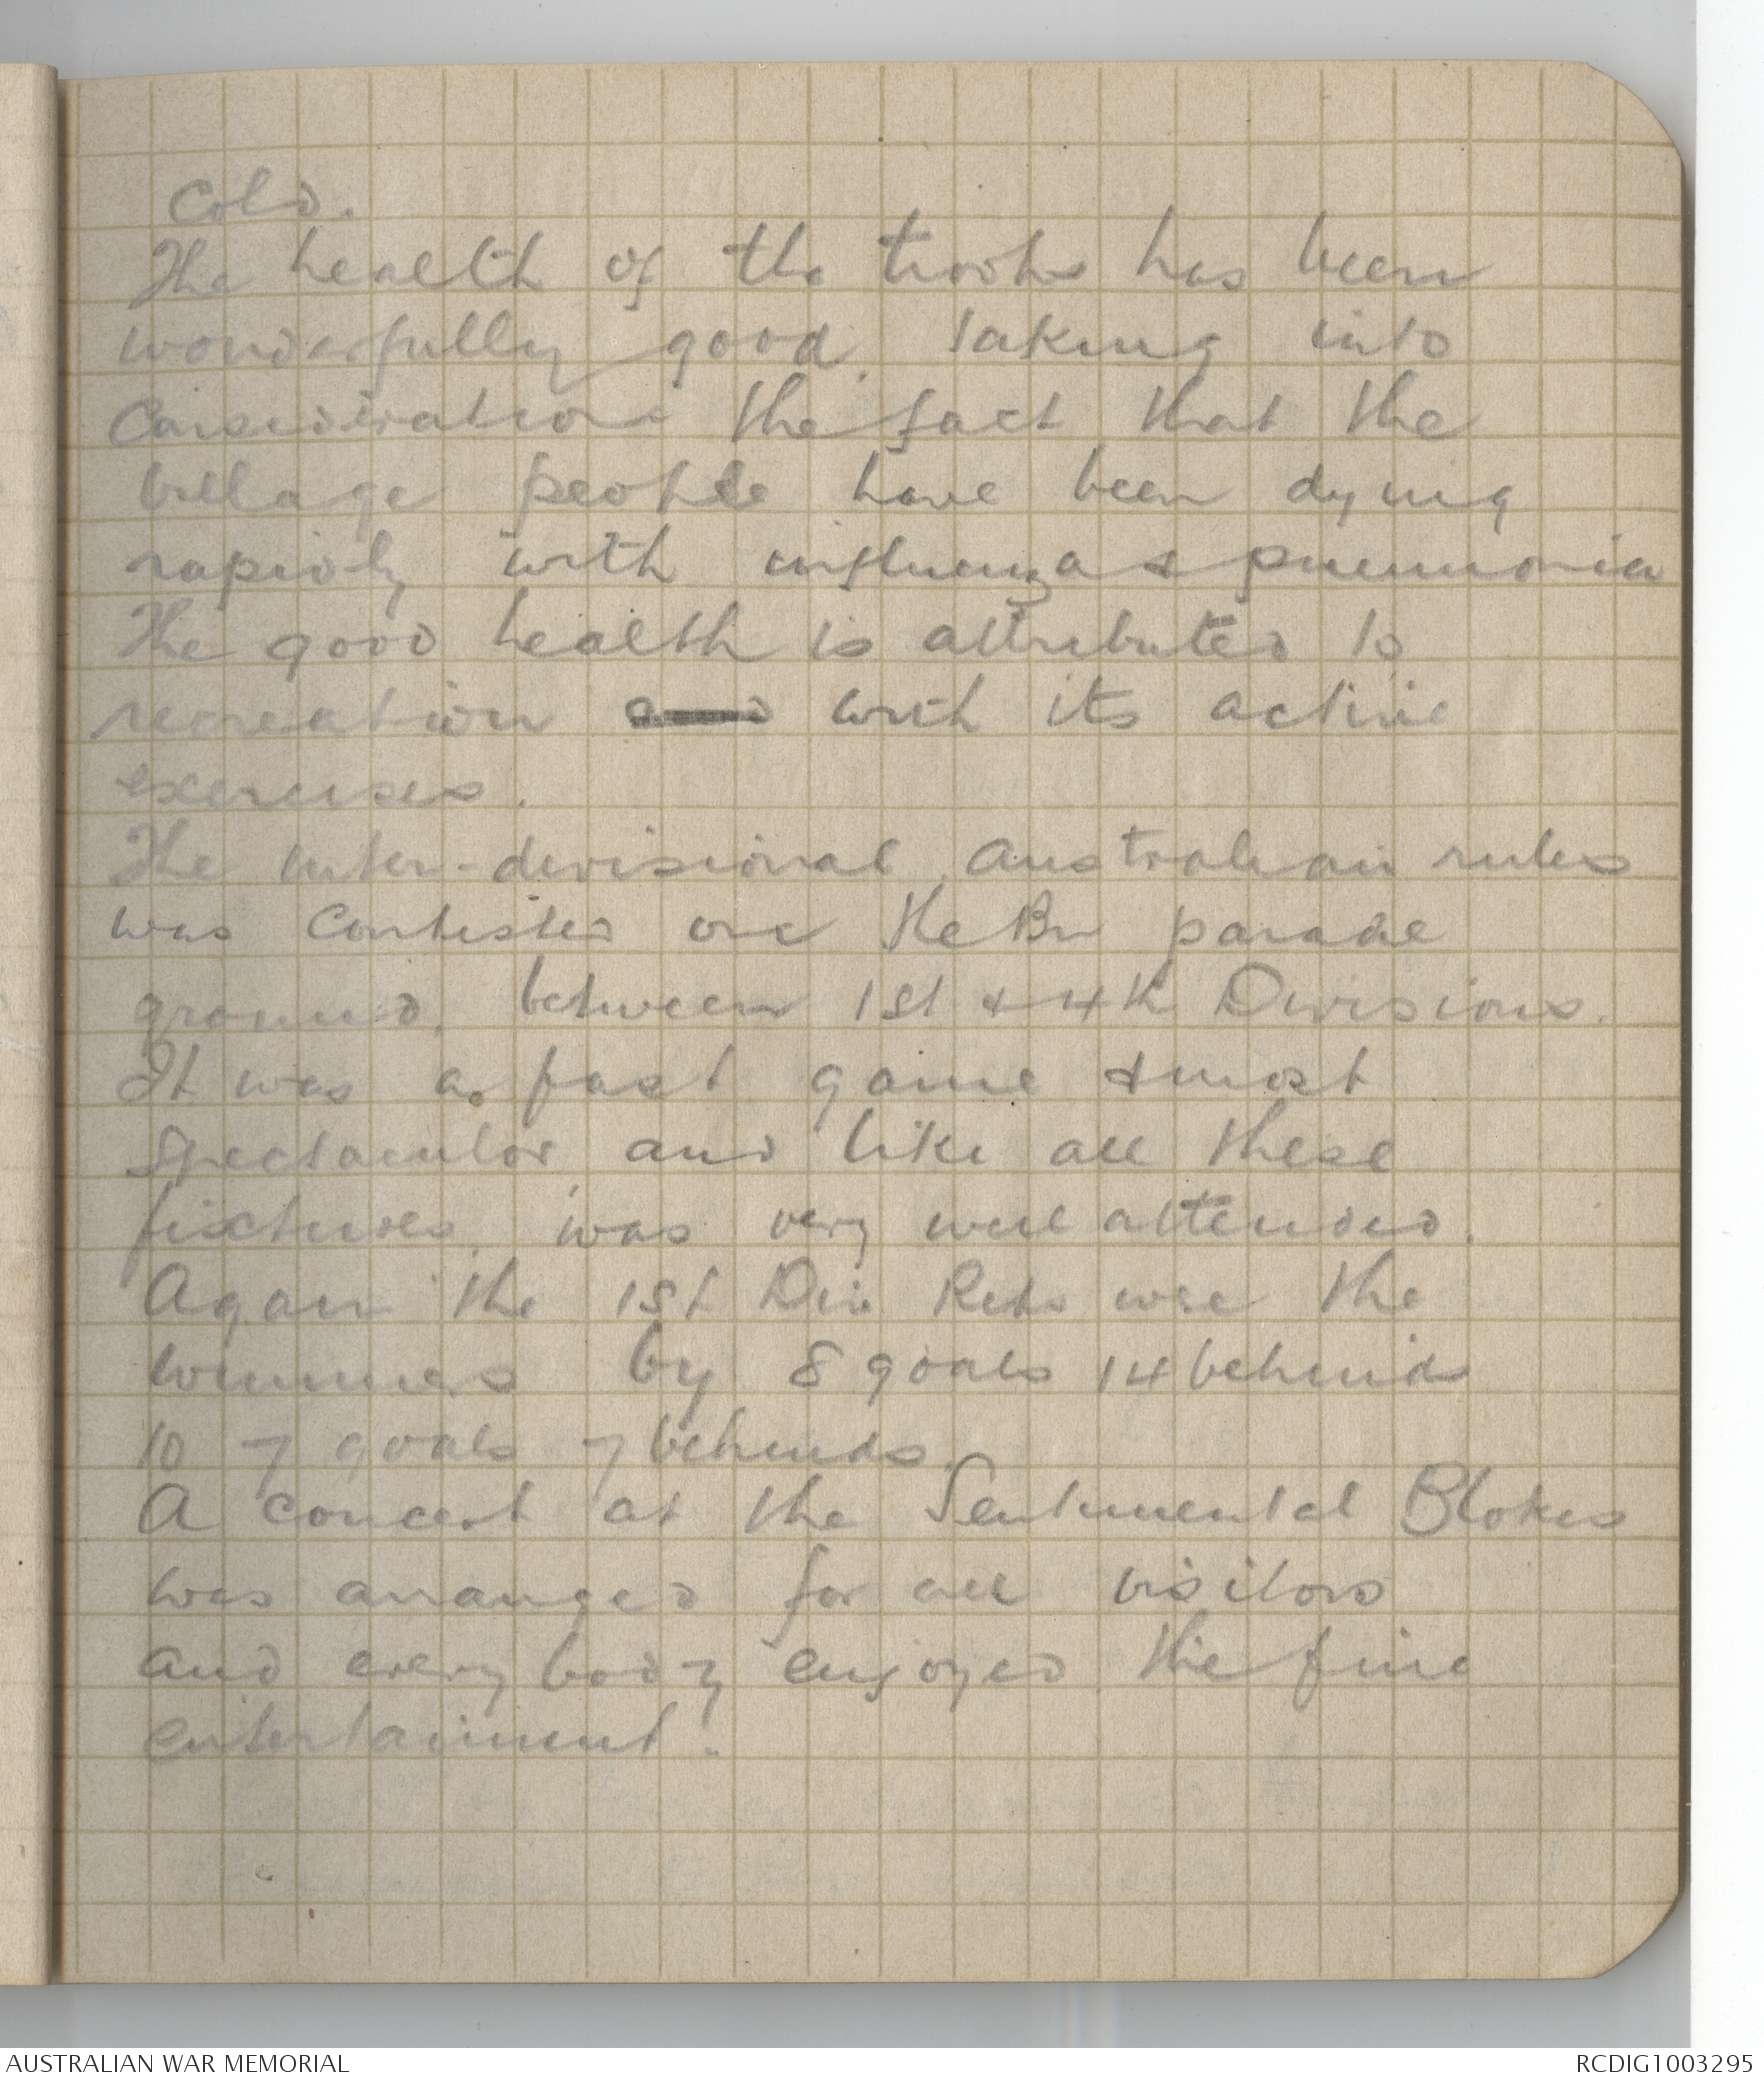 cold.
The health of the troops has been
wonderfully good, taking into
consideration the fact that the
village people have been dying
rapidly with influenza & pneumonia
The good health is attributed to
recreation and with its active
exercises.
The inter-divisional Australian rules
was contested on the Bn parade
ground, between 1st & 4th Divisions.
It was a fast game & most
spectacular, and like all these
fixtures, was very well attended.
Again the 1st Div Reps were the
winners by 8 goals 14 behinds
to 7 goals 7 behinds.
A concert at the Sentimental Blokes
was arranged for all visitors
and everybody enjoyed the fine
entertainment.
AUSTRALIAN WAR MEMORIAL
RCDIG1003295